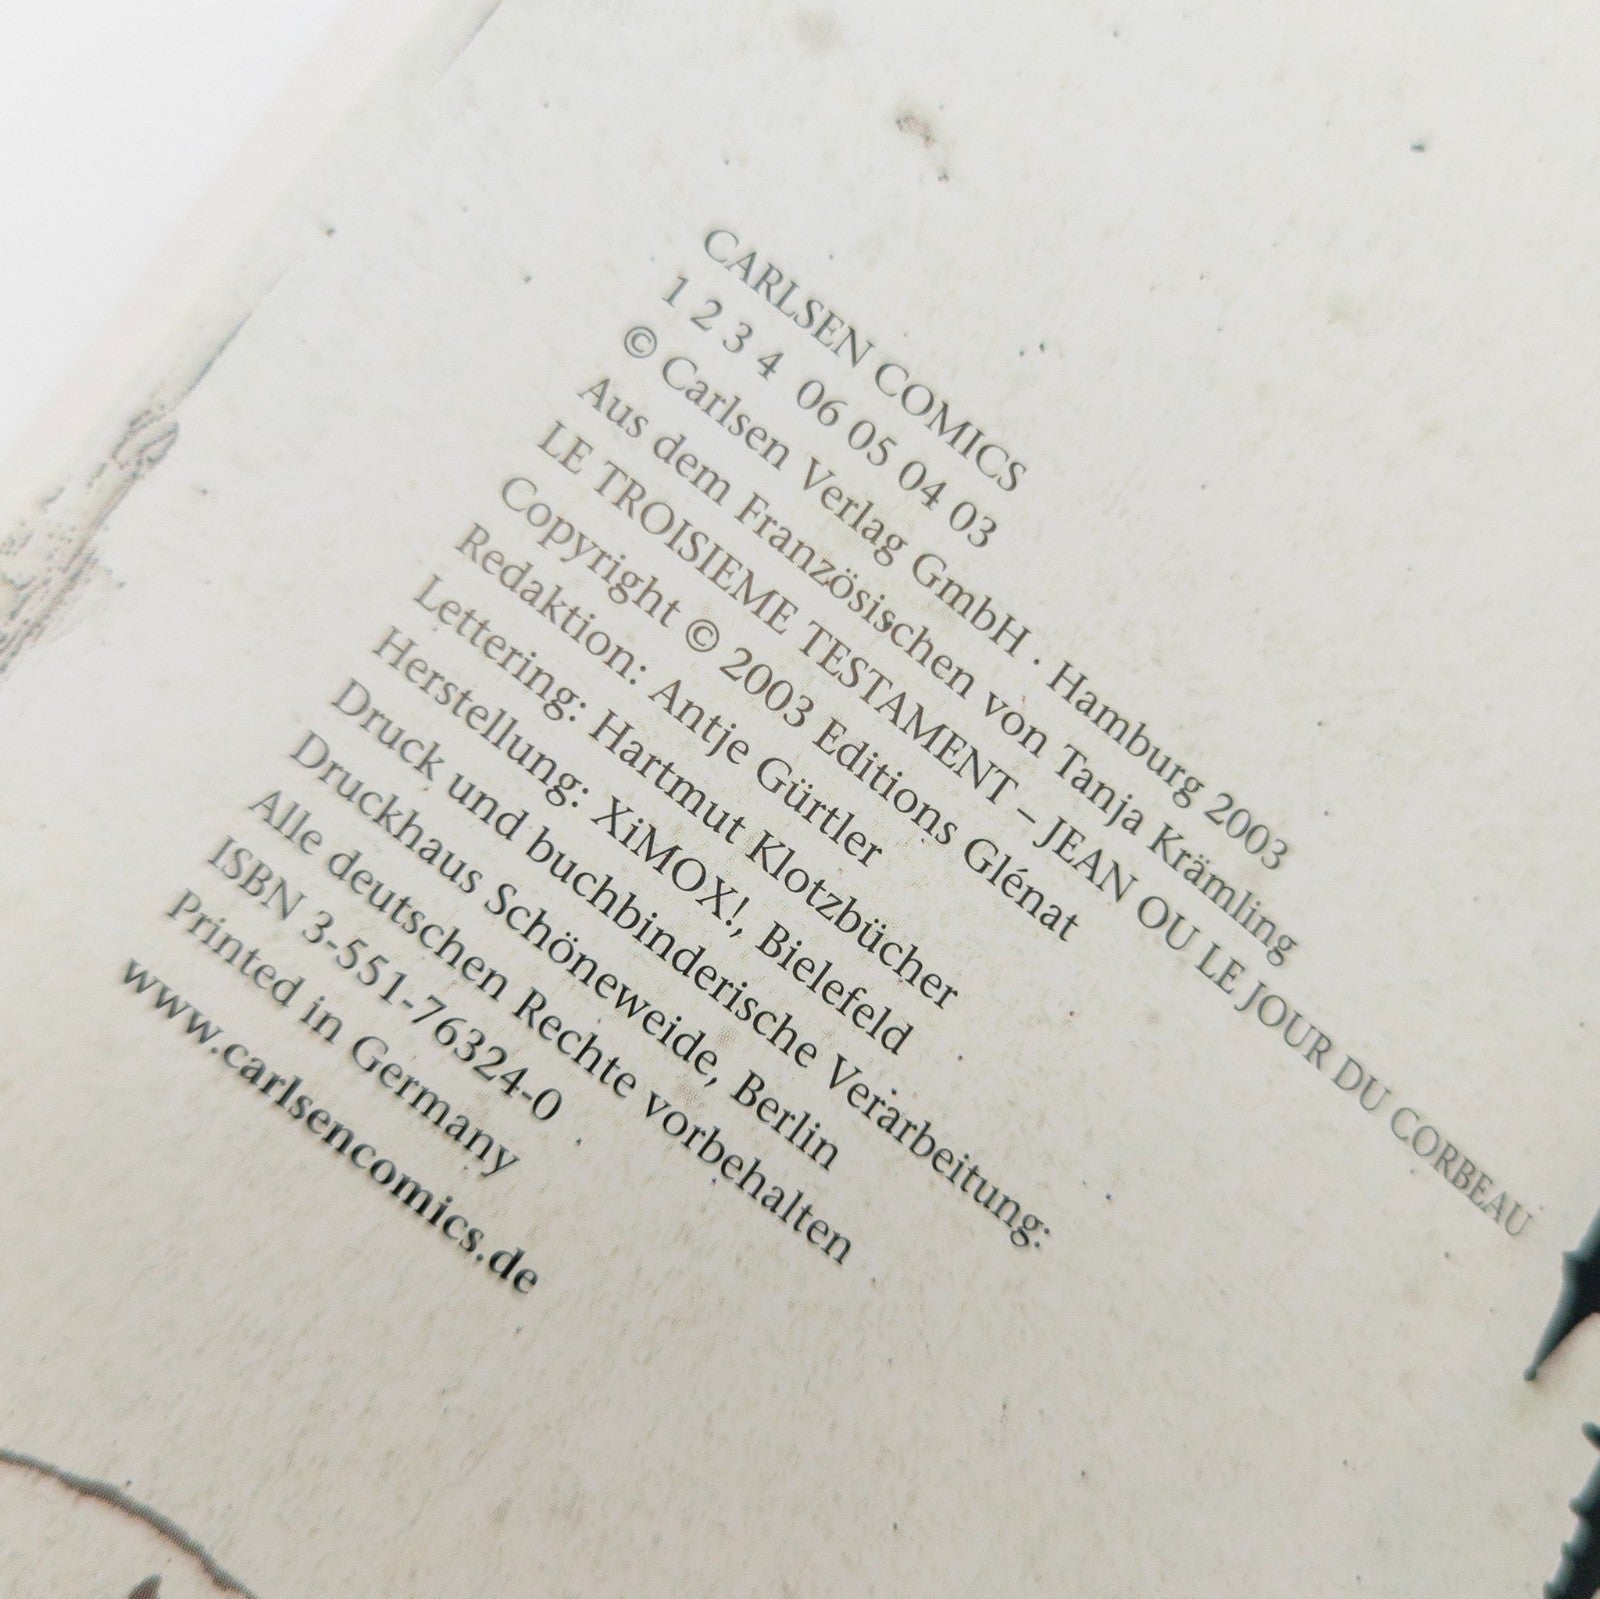 CARLSEN COMICS
1 2 3 4 06 05 04 03
© Carlsen Verlag GmbH · Hamburg 2003
Aus dem Französischen von Tanja Krämling
LE TROISIEME TESTAMENT – JEAN OU LE JOUR DU CORBEAU
Copyright © 2003 Editions Glénat
Redaktion: Antje Gürtler
Lettering: Hartmut Klotzbücher
Herstellung: XiMOX!, Bielefeld
Druck und buchbinderische Verarbeitung:
Druckhaus Schöneweide, Berlin
Alle deutschen Rechte vorbehalten
ISBN 3-551-76324-0
Printed in Germany
www.carlsencomics.de